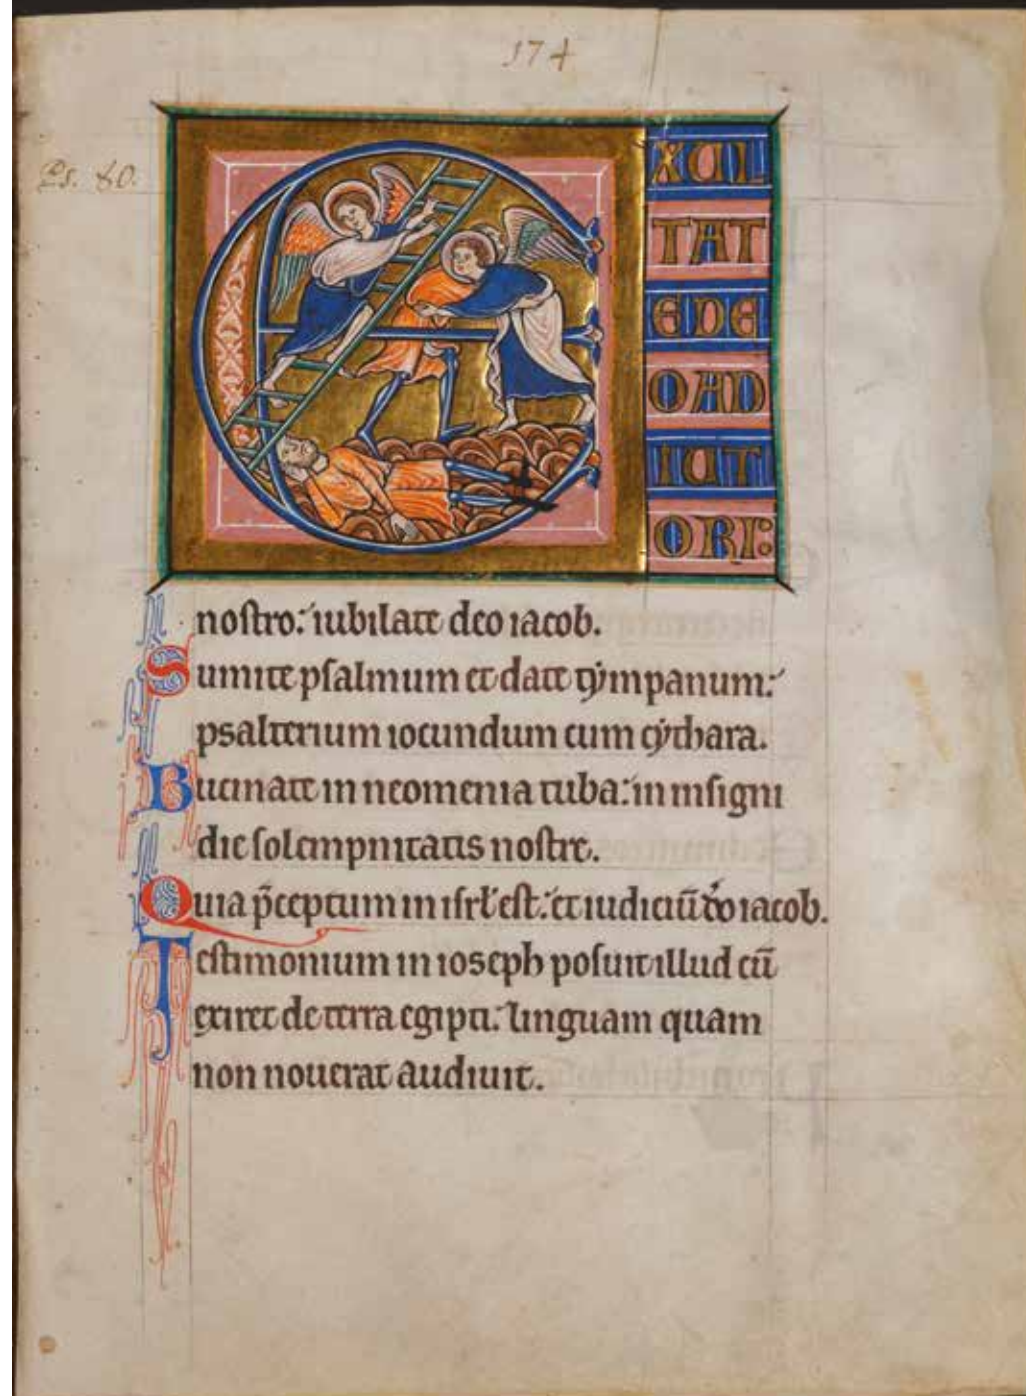 174
Ps. 80.
EXUL
TAT
EDE
OAD
IUT
ORI:
nostro: iubilate deo iacob.
Sumite psalmum et date tẏmpanum:
psalterium iocundum cum cẏthara.
Bucinate in neomenia tuba: in insigni
die solempnitatis nostre.
Quia p̄ceptum in isrl̄ est: et iudiciū d̄o iacob.
Testimonium in ioseph posuit illud cū
exiret de terra egipti: linguam quam
non nouerat audiuit.